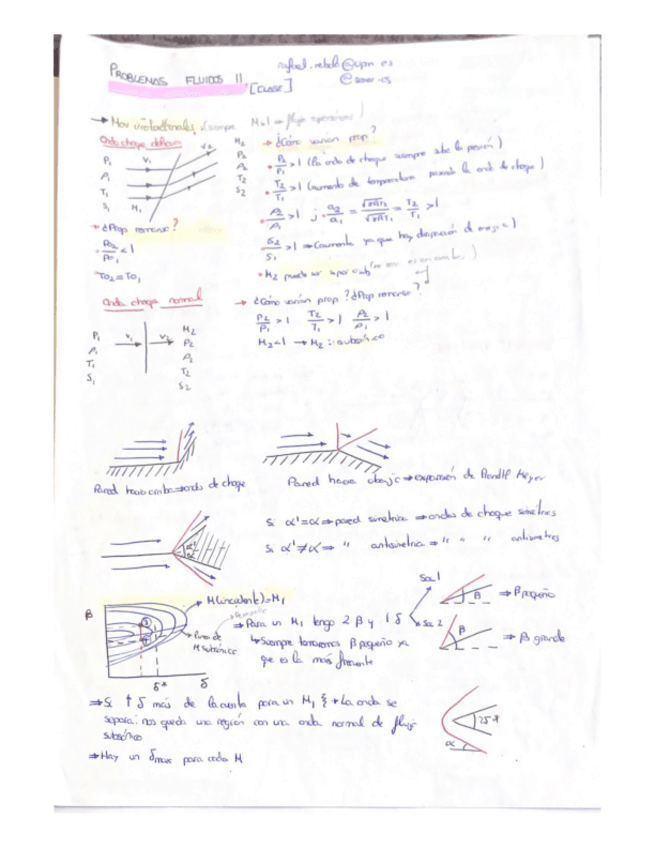 PROBLEMAS FLUIDOS II
[CLASE]
→ Mov irrotacionales (siempre M>1 → flujo supersónico)
Onda choque oblicua
P₁ V₁ V₂ M₂
ρ₁ P₂
T₁ ρ₂
S₁ M₁ T₂
S₂
→ ¿Cómo varían prop?
• P₂/P₁ > 1 (la onda de choque siempre sube la presión)
• T₂/T₁ > 1 (aumento de temperatura pasada la onda de choque)
• ρ₂/ρ₁ > 1 ; a₂/a₁ = √γRT₂/√γRT₁ = T₂/T₁ > 1
• S₂/S₁ > 1 ⇒ (aumenta ya que hay disipación de energ)
• M₂ puede ser
→ ¿Prop remanso?
• P₀₂/P₀₁ < 1
• T₀₂ = T₀₁
Onda choque normal
P₁ V₁ V₂ M₂
ρ₁ P₂
T₁ ρ₂
S₁ T₂
S₂
→ ¿Cómo varían prop? ¿Prop remanso?
P₂/P₁ > 1 T₂/T₁ > 1 ρ₂/ρ₁ > 1
M₂<1 → M₂: subsónico
Pared hacia arriba ⇒ onda de choque
Pared hacia abajo ⇒ expansión de Prandtl Meyer
Si α'=α ⇒ pared simétrica ⇒ ondas de choque simétricas
Si α'≠α ⇒ " antisimétrica ⇒ " " " antisimétricas
α'
α
β
M(incidente)=M₁
Puntos de
M subsónico
δ* δ
⇒ Para un M₁ tengo 2 β y 1 δ
↳ Siempre tomaremos β pequeño ya
que es la más frecuente
Sol 1
β ⇒ β pequeño
Sol 2
β ⇒ β grande
⇒ Si ↑ δ más de la cuenta para un M₁ ⇒ La onda se
separa: nos queda una región con una onda normal de flujo
subsónico
2δ*
α
⇒ Hay un δmax para cada M